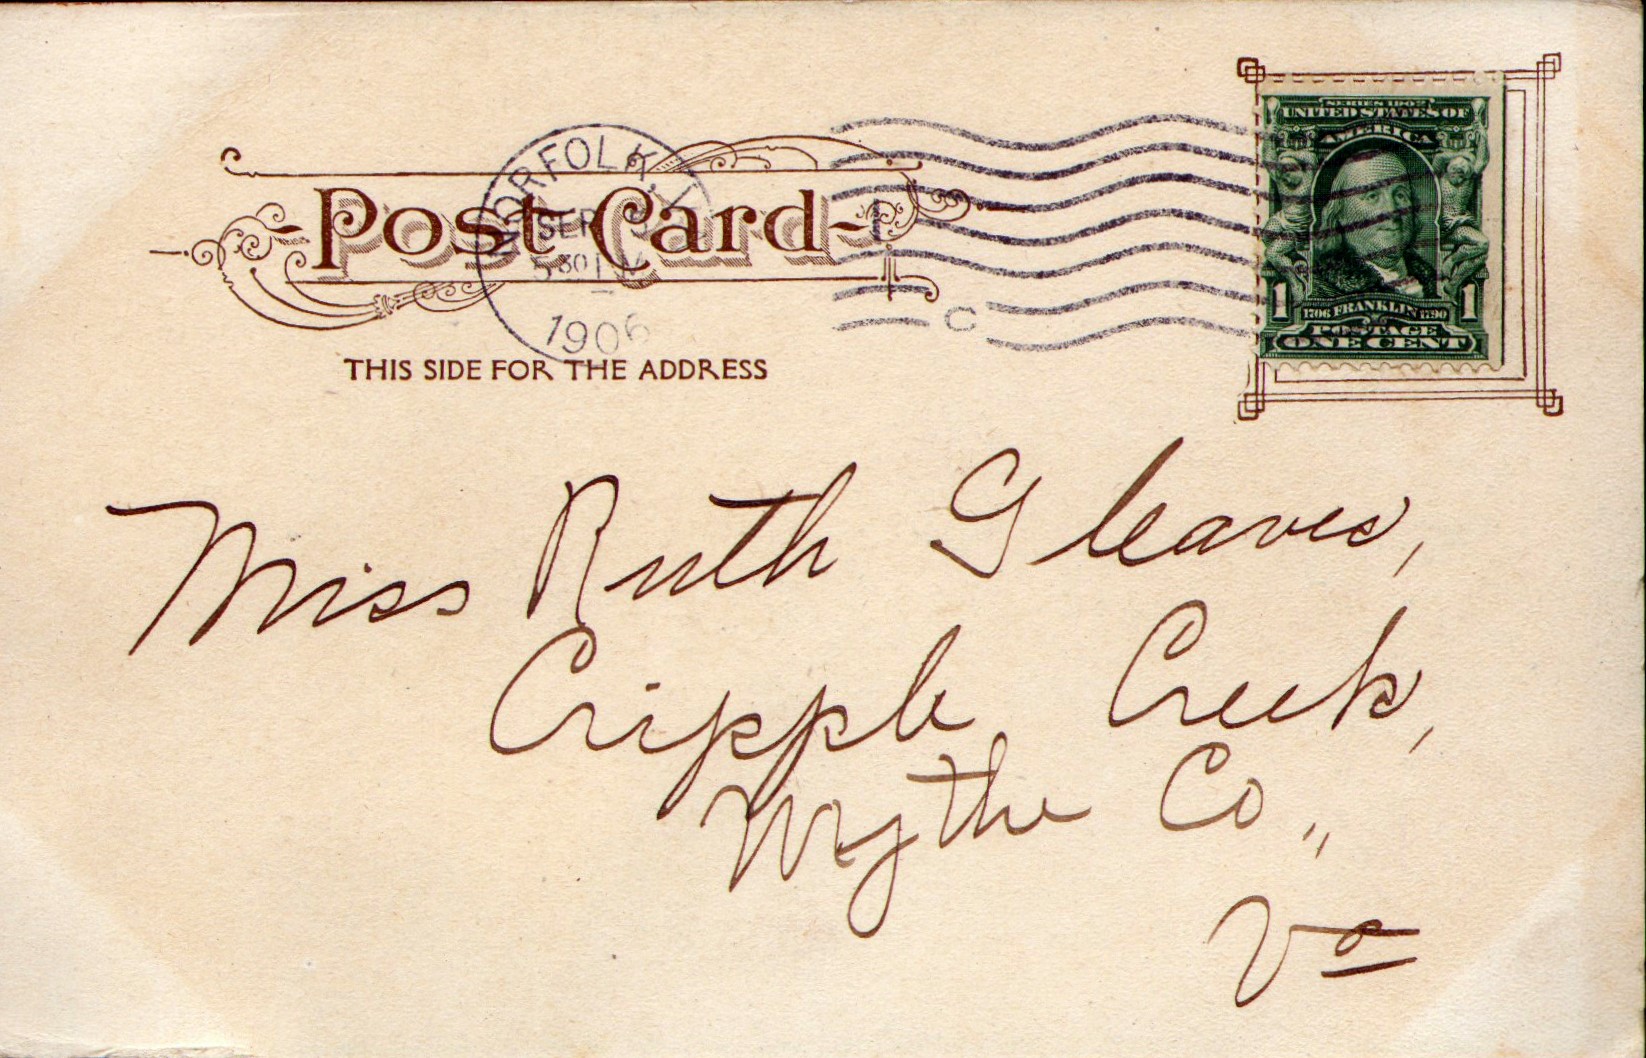 NORFOLK, V
SEP
5 30
1906
Post Card
THIS SIDE FOR THE ADDRESS
C
SERIES 1902
UNITED STATES OF
AMERICA
1 1
1706 FRANKLIN 1790
POSTAGE
ONE CENT
Miss Ruth Gleaves,
Cripple Creek,
Wythe Co.,
Va